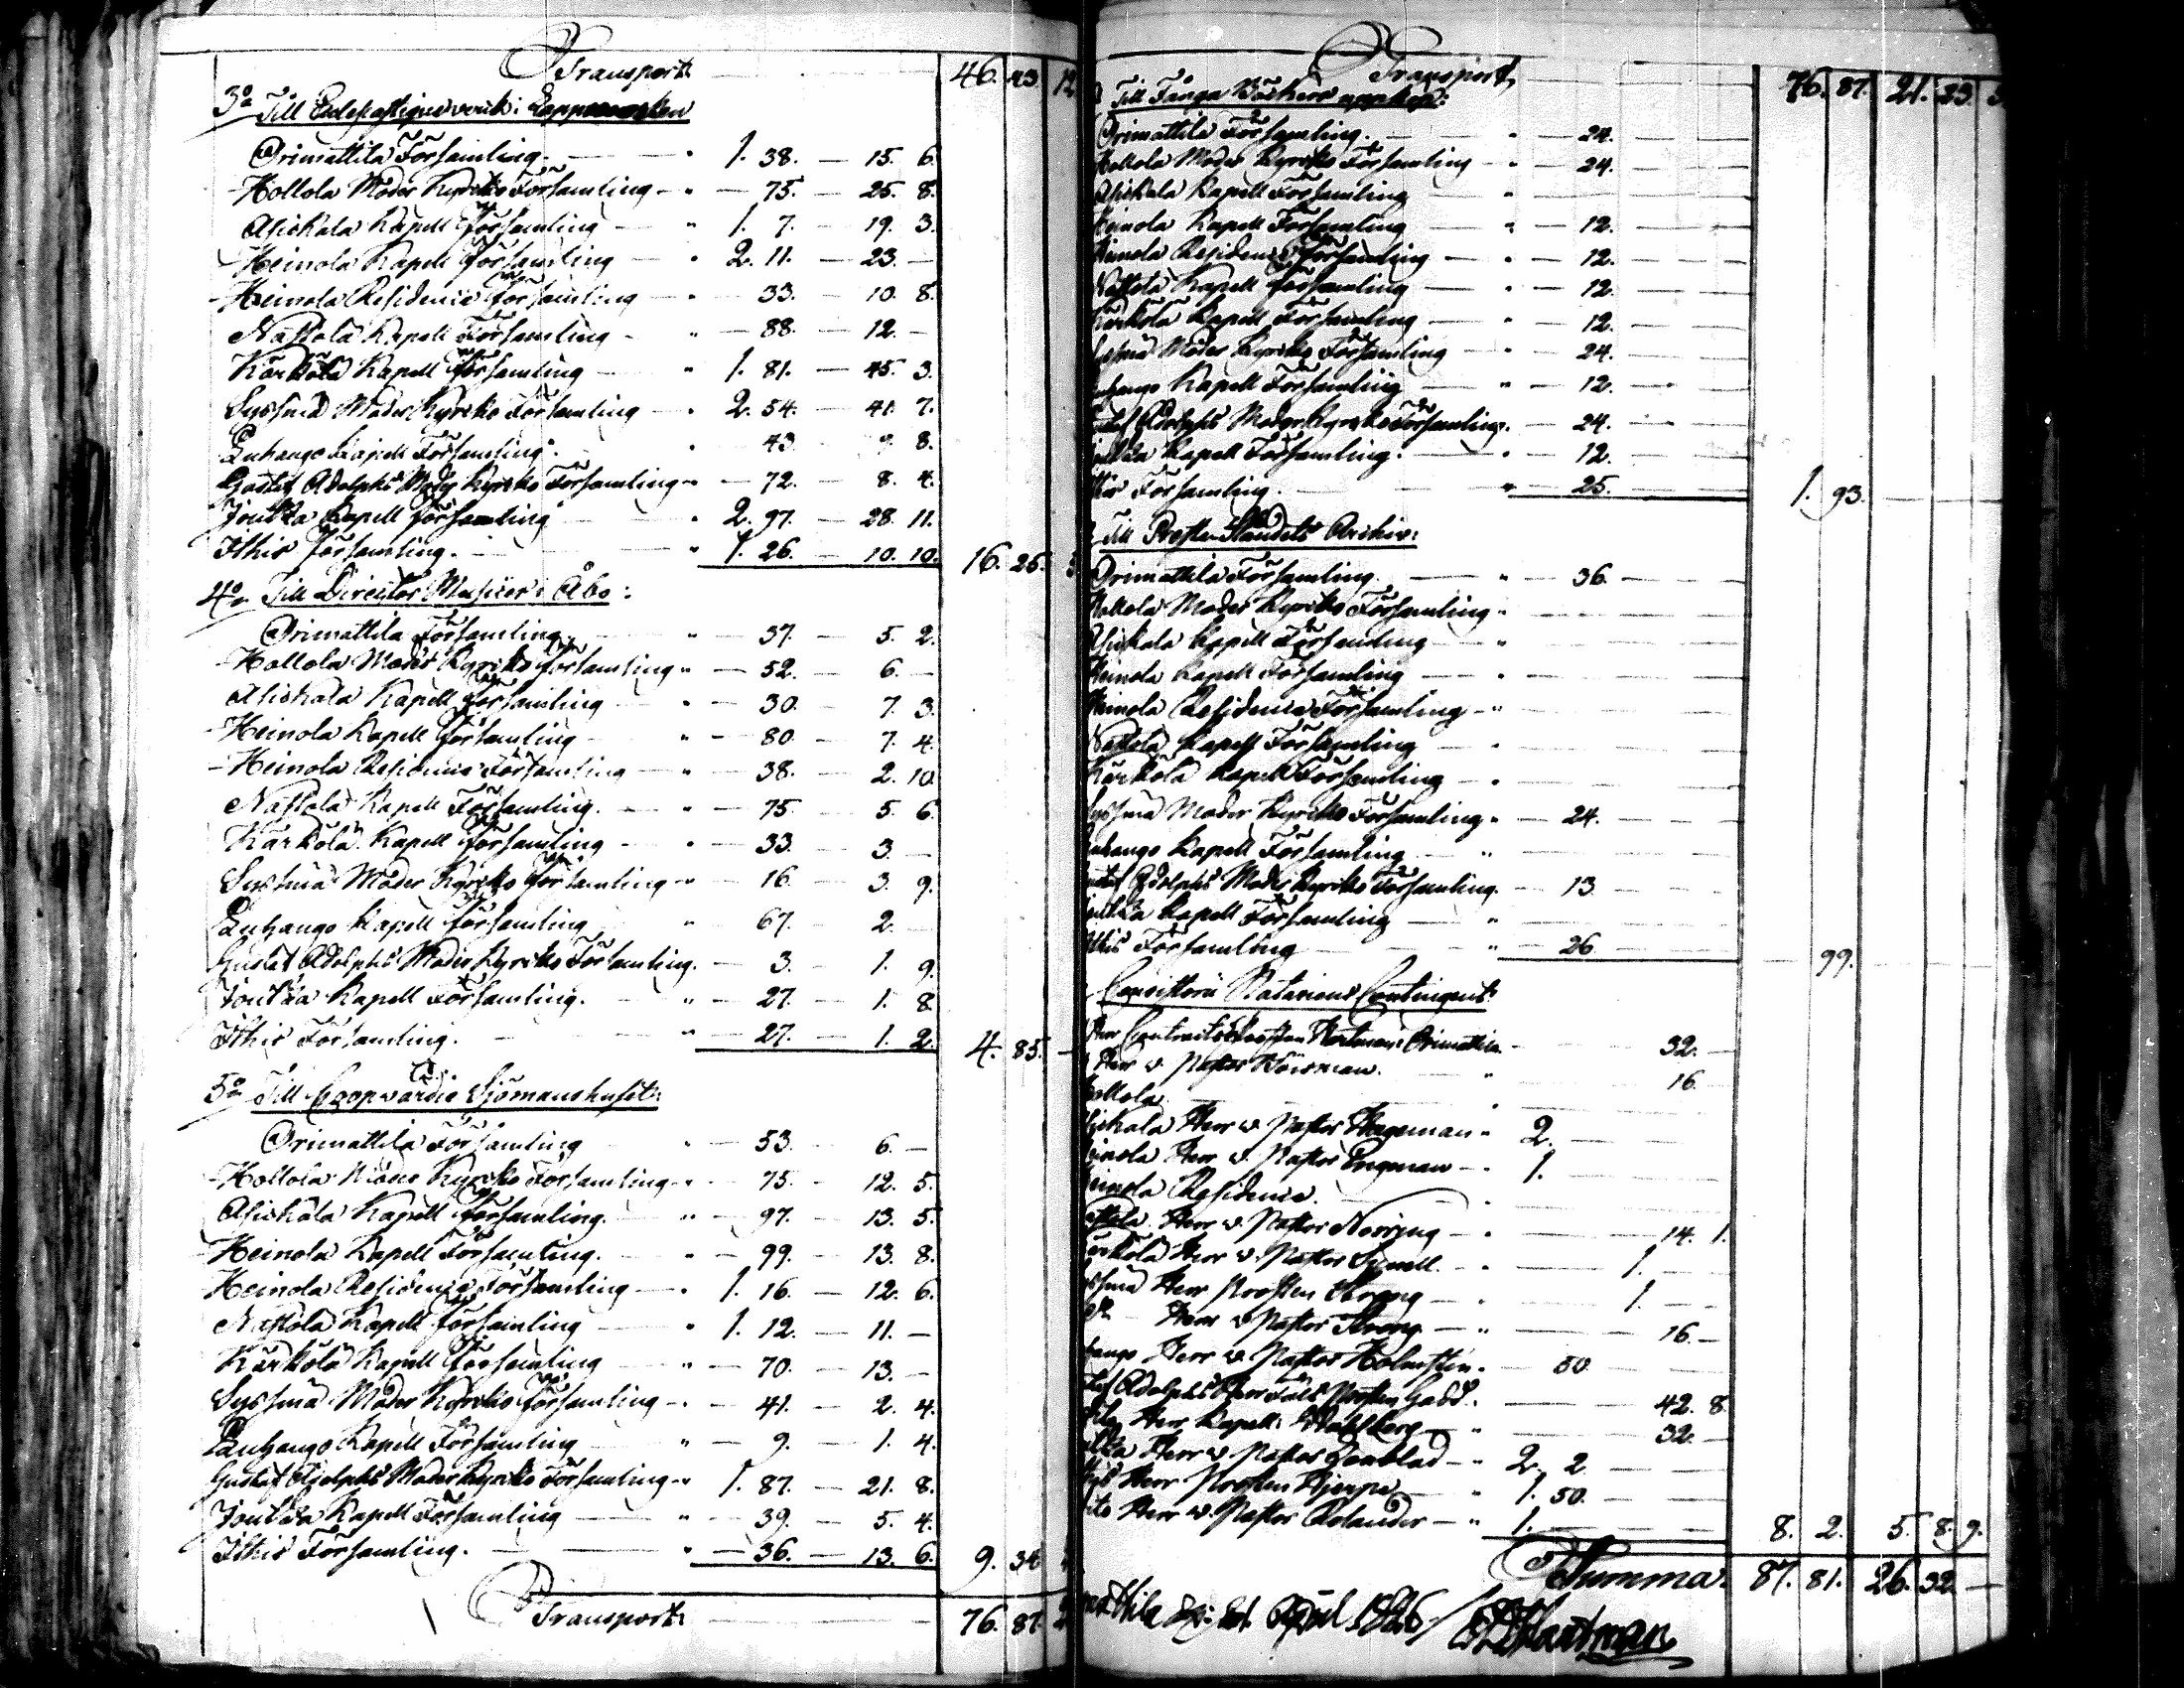 Transport 46. 43. 12
3o Till Ecclesiastique verk i Lappmarken
Orimattila Församling. " 1. 38. — 15. 6.
Hollola Moder Kyrko Församling " — 75. — 25. 8.
Asickala Kapell Församling " 1. 7. — 19. 3.
Heinola Kapell Församling " 2. 11. — 23. —
Heinola Residence Församling " — 33. — 10. 8.
Nastola Kapell Församling " — 88. — 12. —
Kärkölä Kapell Församling " 1. 81. — 45. 3.
Syssmä Moder Kyrko Församling " 2. 54. — 41. 7.
Luhango Kapell Församling " 43. 9. 8.
Gustaf Adolphs Moder Kyrko Församling " — 72. — 8. 4.
Joutza Kapell Församling " 2. 97. — 28. 11.
Ithis Församling. " 1. 26. — 10. 10. 16. 26.
4o Till Director Musices i Åbo:
Orimattila Församling " — 37. — 5. 2.
Hollola Moder Kyrko Församling " — 52. — 6. —
Asickala Kapell Församling " — 30. — 7. 3.
Heinola Kapell Församling " — 80. — 7. 4.
Heinola Residence Församling " — 38. — 2. 10.
Nastola Kapell Församling. " — 75. 5. 6.
Kärkölä Kapell Församling " — 33. 3. —
Syssmä Moder Kyrko Församling " — 16. 3. 9.
Luhango Kapell Församling " 67. 2. —
Gustaf Adolphs Moder Kyrko Församling. — 3. — 1. 9.
Joutza Kapell Församling. " — 27. — 1. 8.
Ithis Församling. " — 27. — 1. 2. 4. 85. —
5o Till Coopvardie Sjömanshuset:
Orimattila Församling " — 53. 6. —
Hollola Moder Kyrko Församling " — 75. — 12. 5.
Asickala Kapell Församling. " — 97. — 13. 5.
Heinola Kapell Församling. " — 99. — 13. 8.
Heinola Residence Församling " 1. 16. — 12. 6.
Nastola Kapell Församling " 1. 12. — 11. —
Kärkölä Kapell Församling " — 70. — 13. —
Syssmä Moder Kyrko Församling " — 41. — 2. 4.
Luhango Kapell Församling " — 9. — 1. 4.
Gustaf Adolphs Moder Kyrko Församling " 1. 87. — 21. 8.
Joutza Kapell Församling " — 39. — 5. 4.
Ithis Församling. " — 36. — 13. 6. 9. 34
Transport 76. 87.
Transport 76. 87. 21. 23.
Till Fånga Böckers uppköp:
Orimattila Församling. " — 24.
Hollola Moder Kyrko Församling " 24.
Asickala Kapell Församling "
Heinola Kapell Församling " — 12.
Heinola Residence Församling " — 12.
Nastola Kapell Församling " — 12.
Kärkölä Kapell Församling " — 12.
Syssmä Moder Kyrko Församling " 24.
Luhango Kapell Församling " — 12.
Gustaf Adolphs Moder Kyrko Församling. — 24.
Joutza Kapell Församling. " — 12.
Ithis Församling. " — 25. 1. 93.
Till Preste Ståndets Archiv:
Orimattila Församling. " — 36. —
Hollola Moder Kyrko Församling "
Asickala Kapell Församling "
Heinola Kapell Församling "
Heinola Residence Församling "
Nastola Kapell Församling "
Kärkölä Kapell Församling "
Syssmä Moder Kyrko Församling " — 24.
Luhango Kapell Församling "
Gustaf Adolphs Moder Kyrko Församling. — 13.
Joutza Kapell Församling "
Ithis Församling " — 26. 99.
Consistorii Notariens Contingent:
Herr Contracts Prosten Hartman i Orimattila — 32. —
Herr v. Pastor " 16.
Hollola "
Asickala Herr v. Pastor Hageman " 2. —
Heinola Herr v. Pastor " 1. —
Heinola Residence. "
Nastola Herr v. Pastor " 14. 1.
Kärkölä Herr v. Pastor " 1. —
Syssmä Herr Prosten " 1. —
Herr v. Pastor " 16. —
Luhango Herr v. Pastor Holmsten — 50
Gustaf Adolphs Herr Fält Prosten Gadd. 42. 8.
Herr Kapell: Wahlberg " 32. —
Joutza Herr v. Pastor " 2. 2
Ithis Herr Prosten Hjerpe " 1. 50. —
Dito Herr v. Pastor Rolander " 1. 8. 2. 5. 8. 9.
Summa 87. 81. 26. 32. —
Orimattila April 1826
Hartman